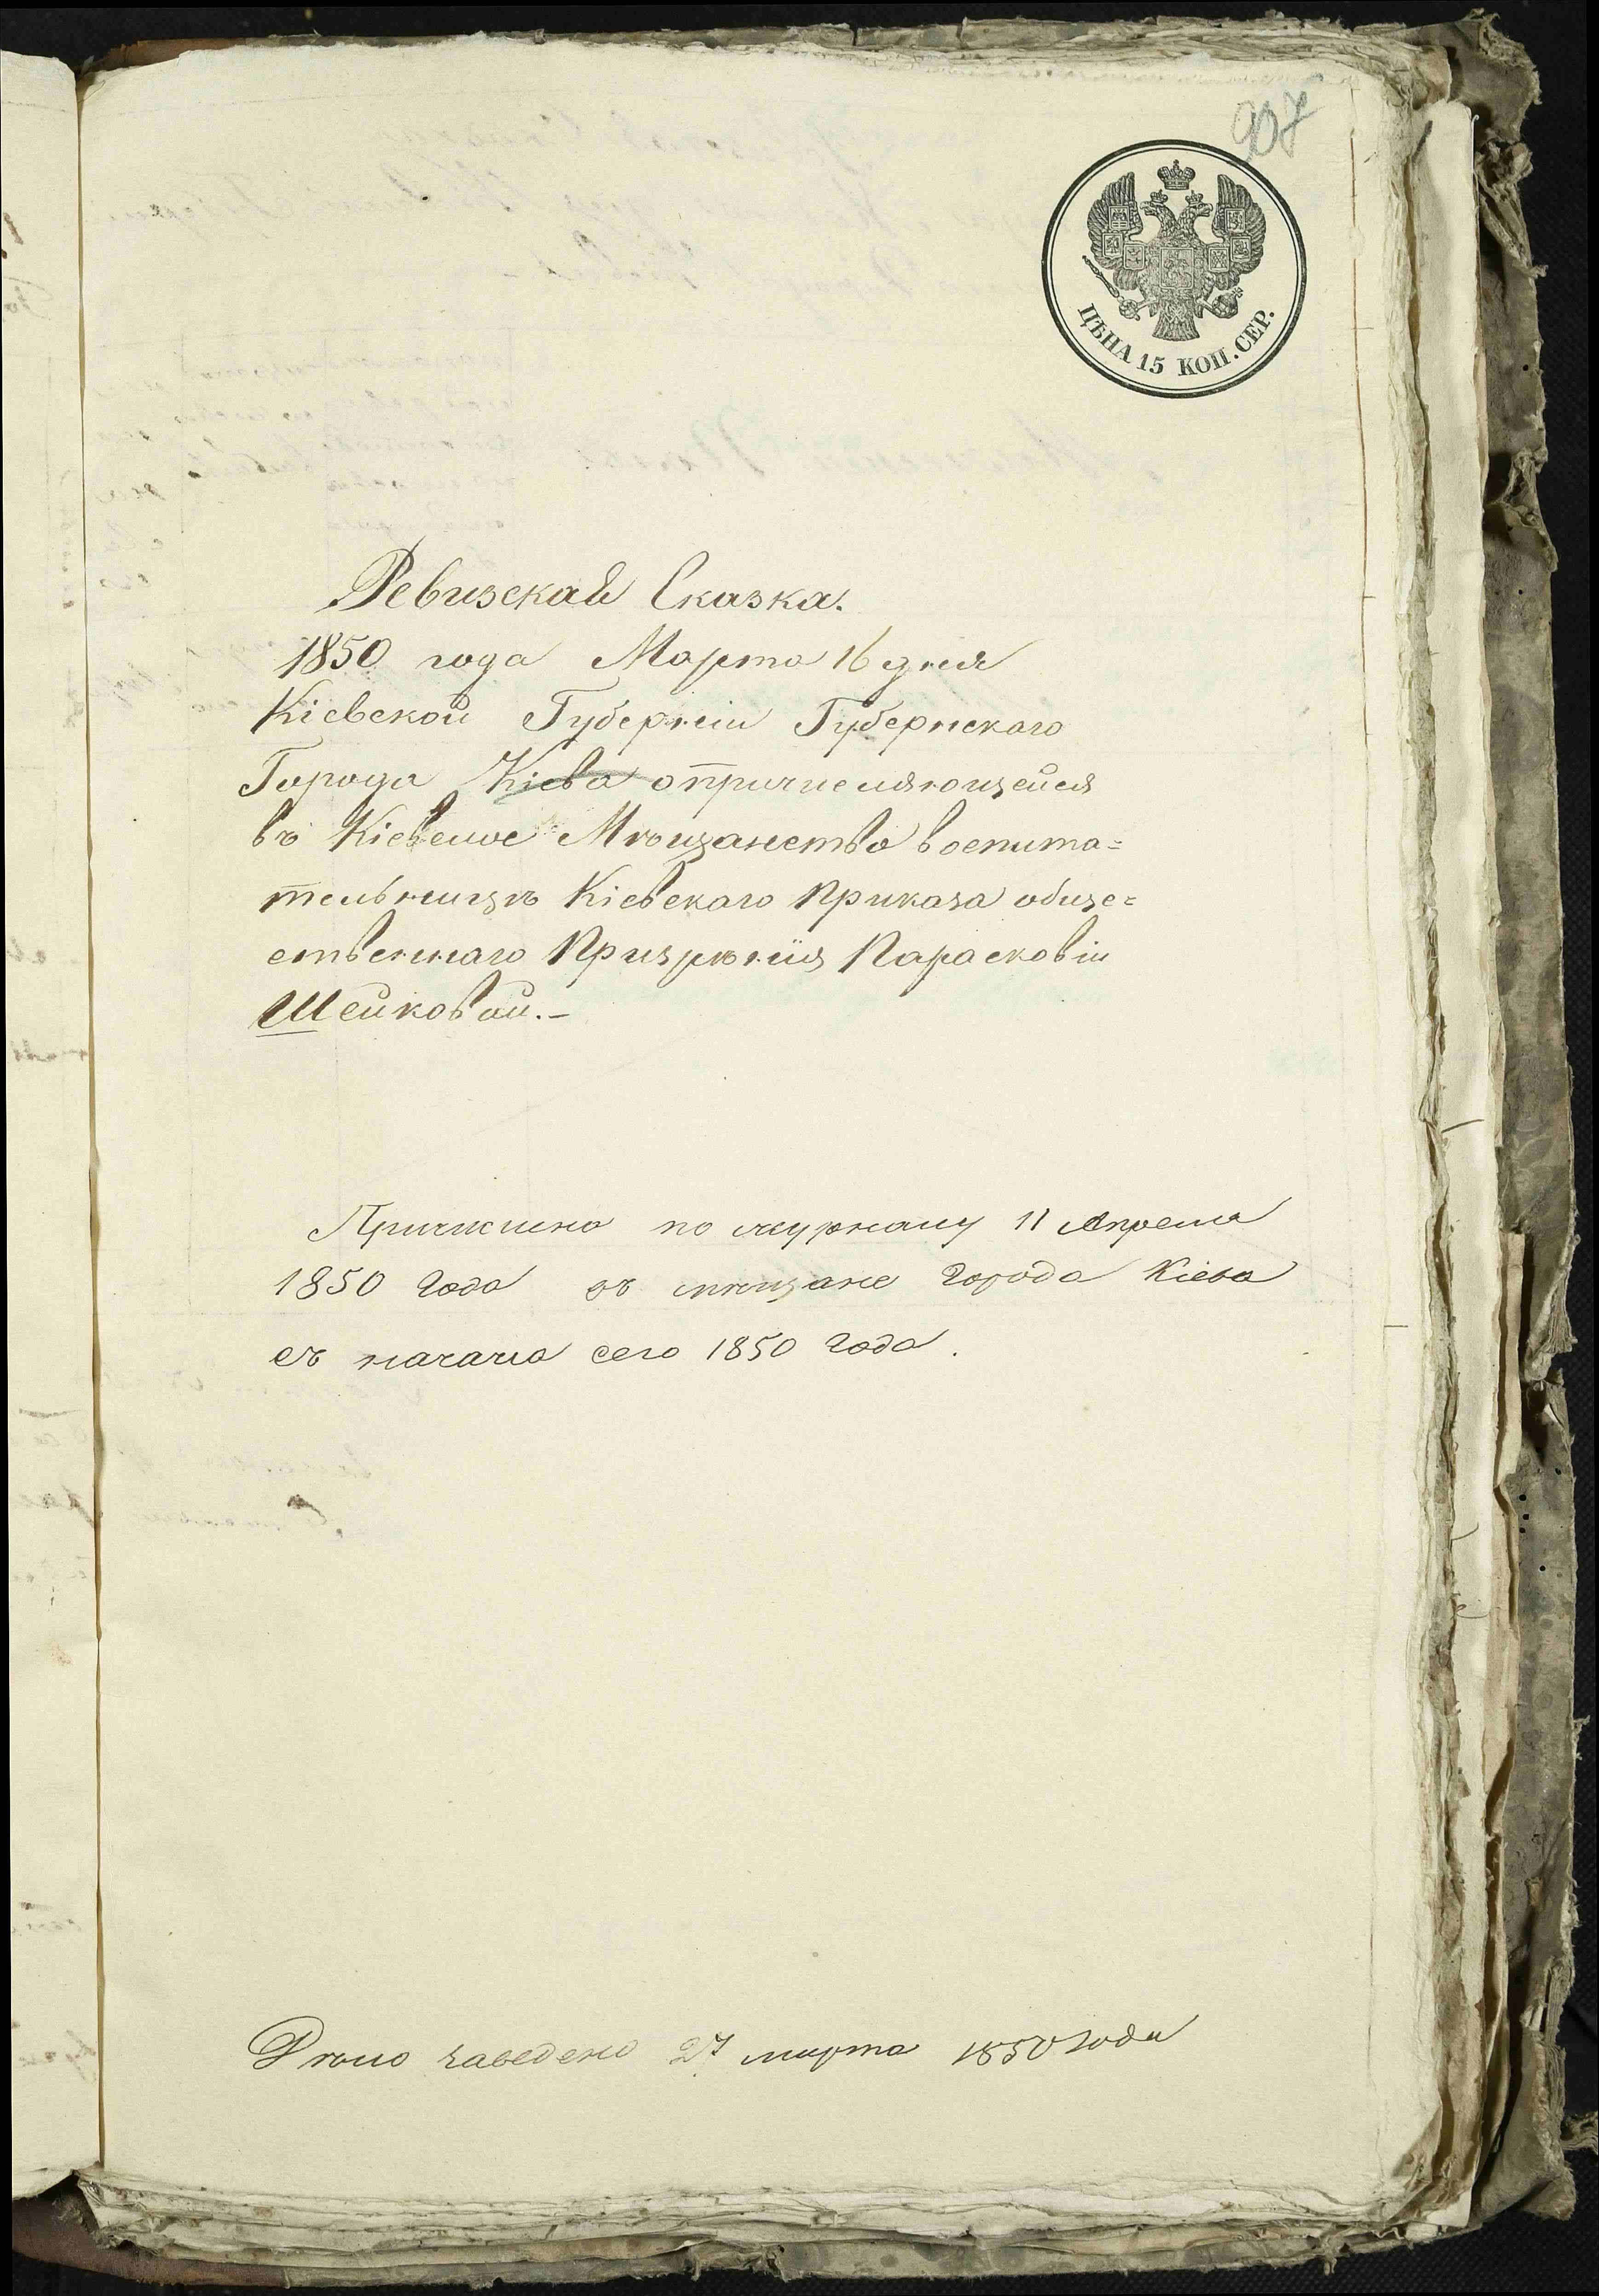 907
ЦѢНА 15 КОП. СЕР.
Ревизская Сказка.
1850 года Марта 16 дня
Кіевской Губерніи Губернскаго
Города Кіева опричисляющейся
въ Кіевское Мѣщанство воспита=
тельницѣ Кіевскаго Приказа обще=
ственнаго Призрѣнія Парасковіи
Шейковой.-
Причислена по журналу 11 Апреля
1850 Года въ мѣщане Города Кіева
съ начала сего 1850 Года.
Дѣло заведено 27 марта 1850 года